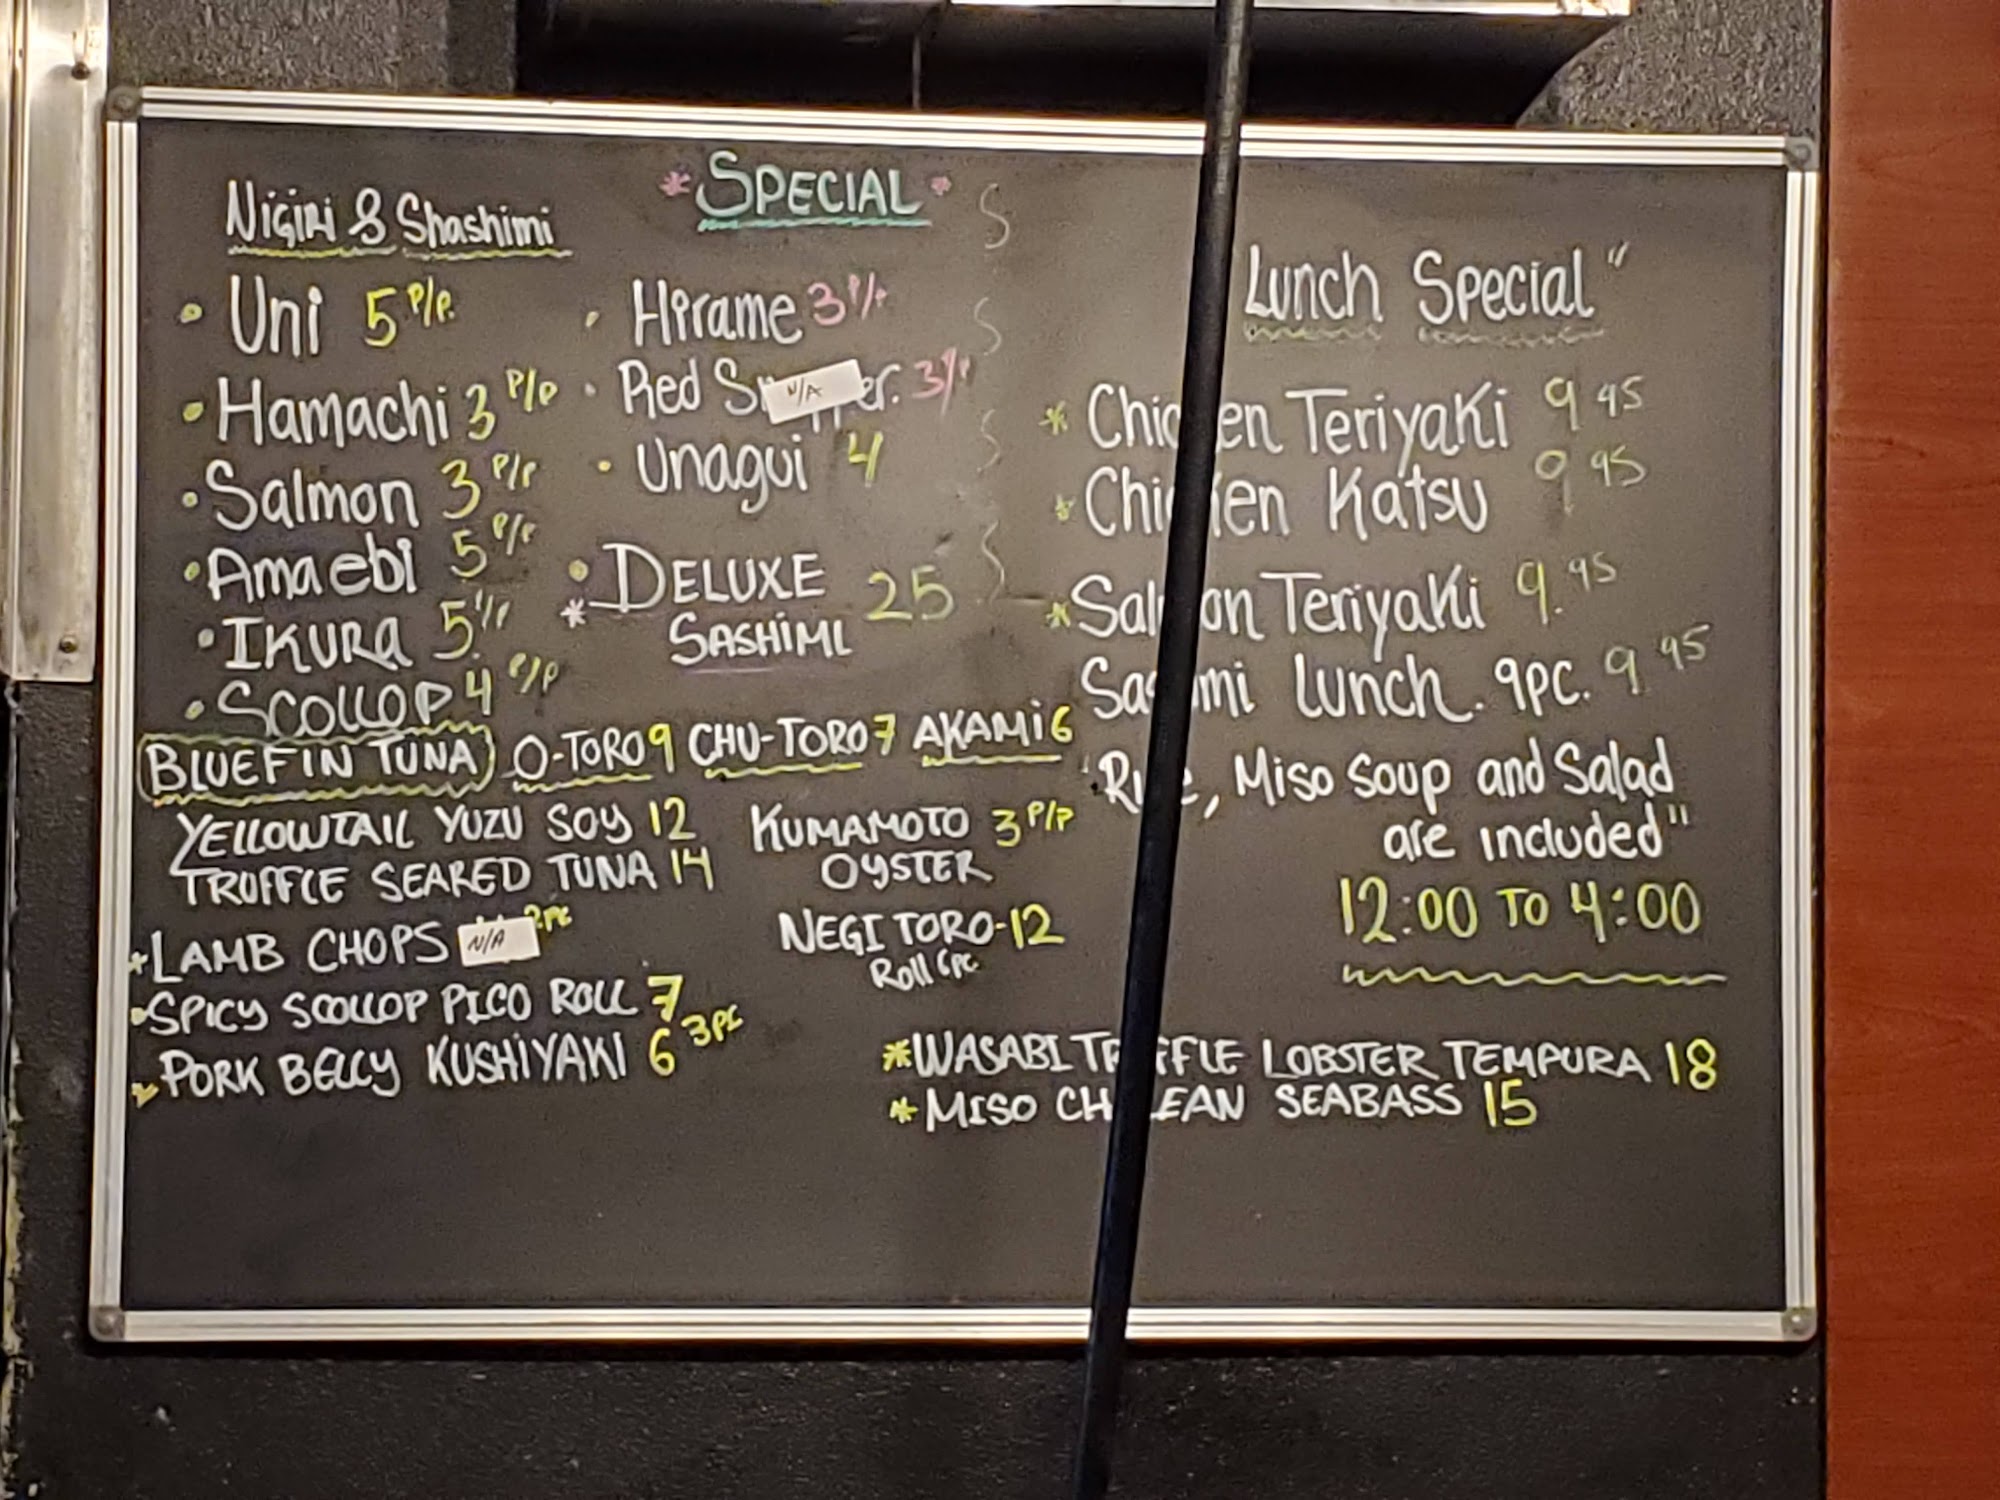 *SPECIAL*
Nigiri & Shashimi
• Uni 5 P/P.
• Hamachi 3 P/P
• Salmon 3 P/P
• Amaebi 5 P/P
• IKURA 5
• SCOLLOP 4 P/P
• Hirame 3 P/P
• Red N/A 3
• Unagui 4
• DELUXE 25
* SASHIMI
BLUEFIN TUNA O-TORO 9 CHU-TORO 7 AKAMI 6
YELLOWTAIL YUZU SOY 12
TRUFFLE SEARED TUNA 14
* LAMB CHOPS N/A 2PC
• SPICY SCOLLOP PICO ROLL 7
PORK BELLY KUSHIYAKI 6 3PC
KUMAMOTO 3 P/P
OYSTER
NEGI TORO-12
Roll 6pc
Lunch Special"
* Chicken Teriyaki 9 95
* Chicken Katsu 9 95
* Salmon Teriyaki 9. 95
Lunch. 9pc. 9 95
Rice, Miso Soup and Salad
are included"
12:00 TO 4:00
*WASABI TRUFFLE LOBSTER TEMPURA 18
* MISO CHILEAN SEABASS 15